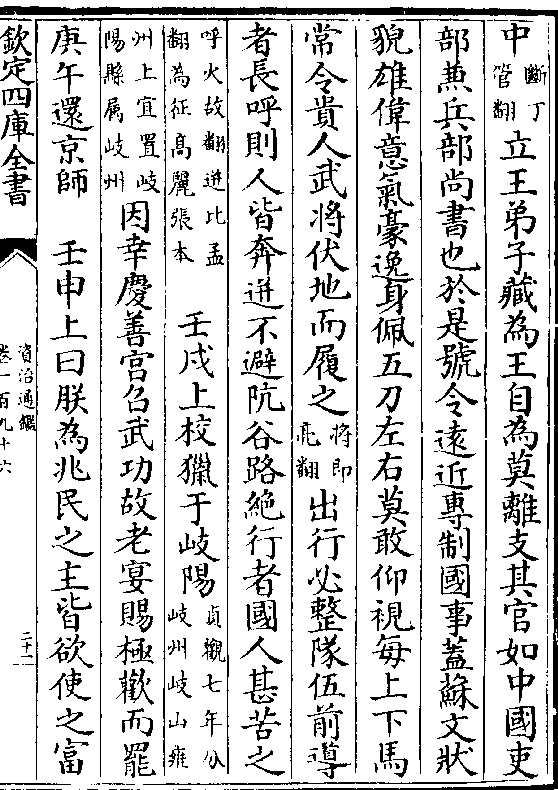 中斷丁管翻立王弟子藏為王自為莫離支其官如中國吏
部兼兵部尚書也於是號令遠近專制國事蓋蘇文狀
貌雄偉意氣豪逸身佩五刀左右莫敢仰視每上下馬
常令貴人武將伏地而履之將即亮翻出行必整隊伍前導
者長呼則人皆奔迸不避阬谷路絶行者國人甚苦之
呼火故翻迸比孟翻為征高麗張本 壬戌上校獵于岐陽貞觀七年分岐州岐山雍
州上宜置岐陽縣属岐州因幸慶善宫召武功故老宴賜極歡而罷
庚午還京師 壬申上曰朕為兆民之主皆欲使之富
欽定四庫全書
資治通鑑
卷一百九十六
二十一